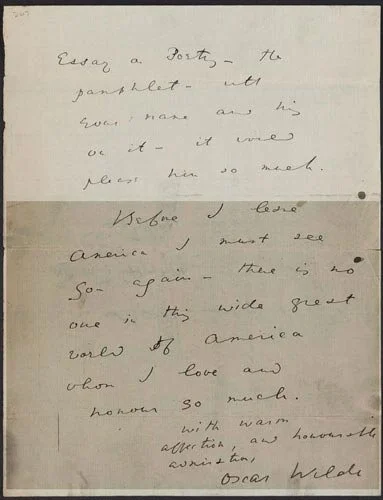 Essay on Poetry – the
pamphlet – with
your name and his
on it – it would
please him so much.
Before I leave
America I must see
you again – there is no
one in this wide great
world of America
whom I love and
honour so much.
With warm
affection, and honourable
admiration,
Oscar Wilde